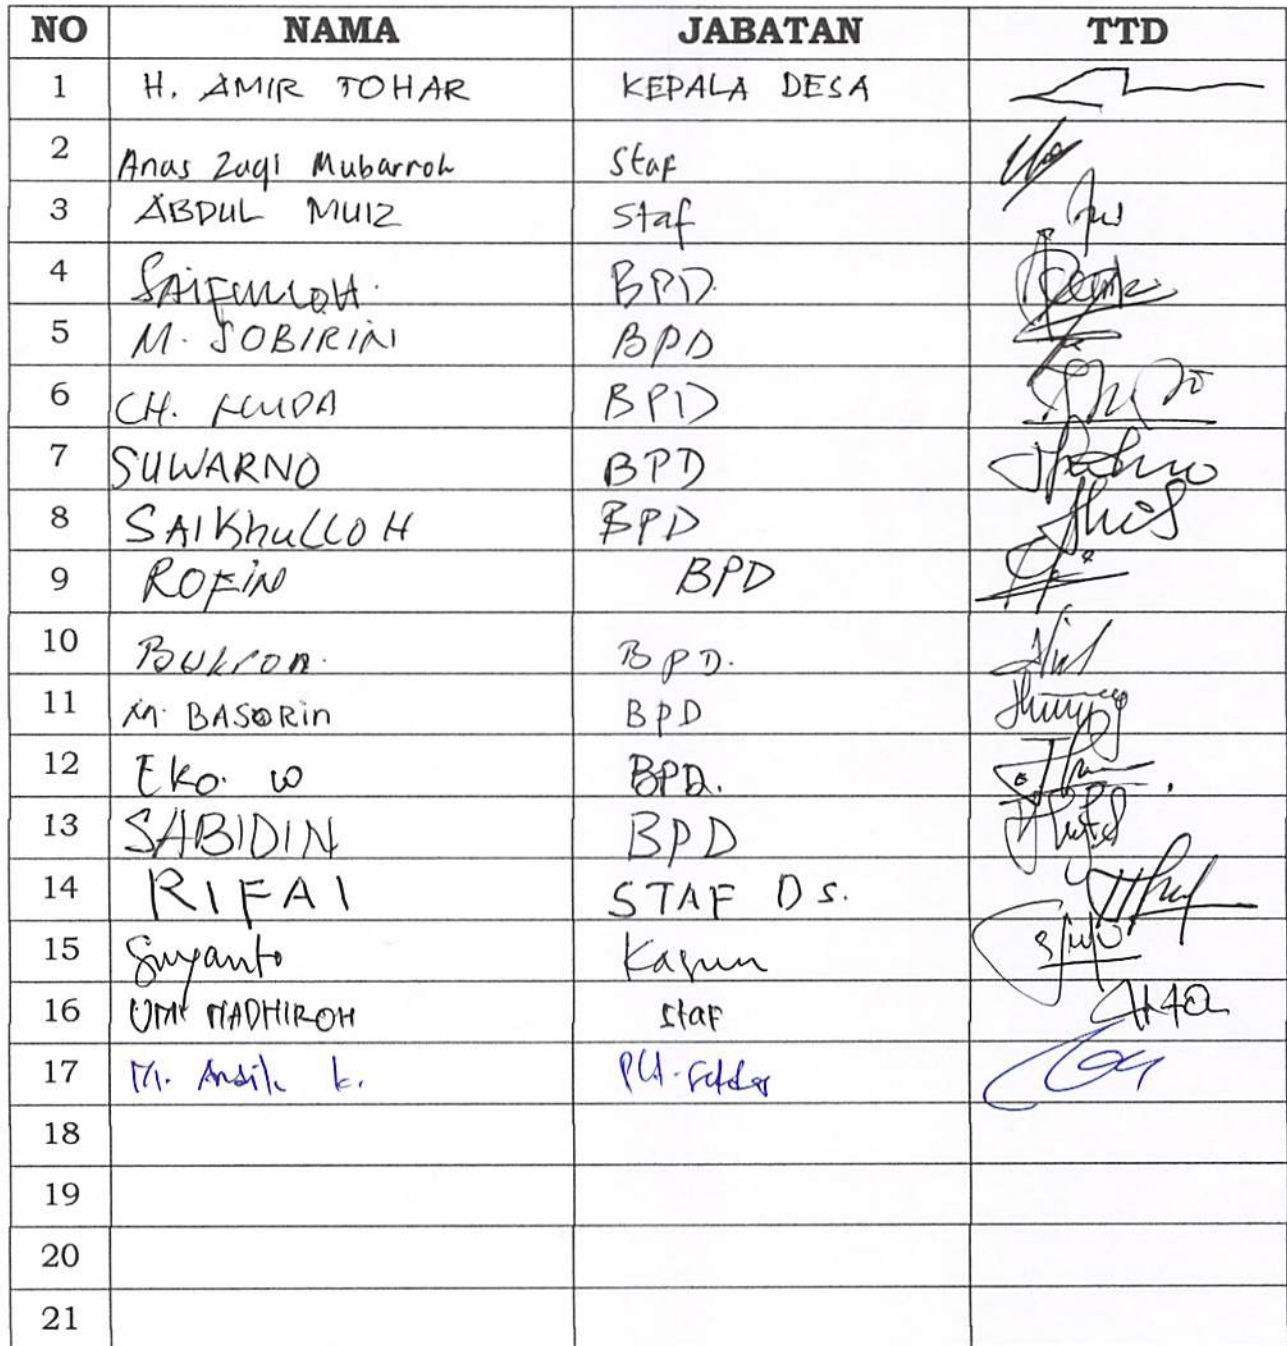 NO NAMA JABATAN TTD
1 H. AMIR TOHAR KEPALA DESA
2 Anas Zaqi Mubarroh Staf
3 ABDUL MUIZ Staf
4 SAIFULLOH. BPD.
5 M. SOBIRIN BPD
6 CH. HUDA BPD
7 SUWARNO BPD
8 SAIKhuLLOH BPD
9 ROFiN BPD
10 Bukron. BPD.
11 M. BASORin BPD
12 Eko. W BPD.
13 SABIDIN BPD
14 RIFAI STAF Ds.
15 Suyanto Kasun
16 UMI MADHIROH staf
17 M. Andik k. Plt.
18
19
20
21